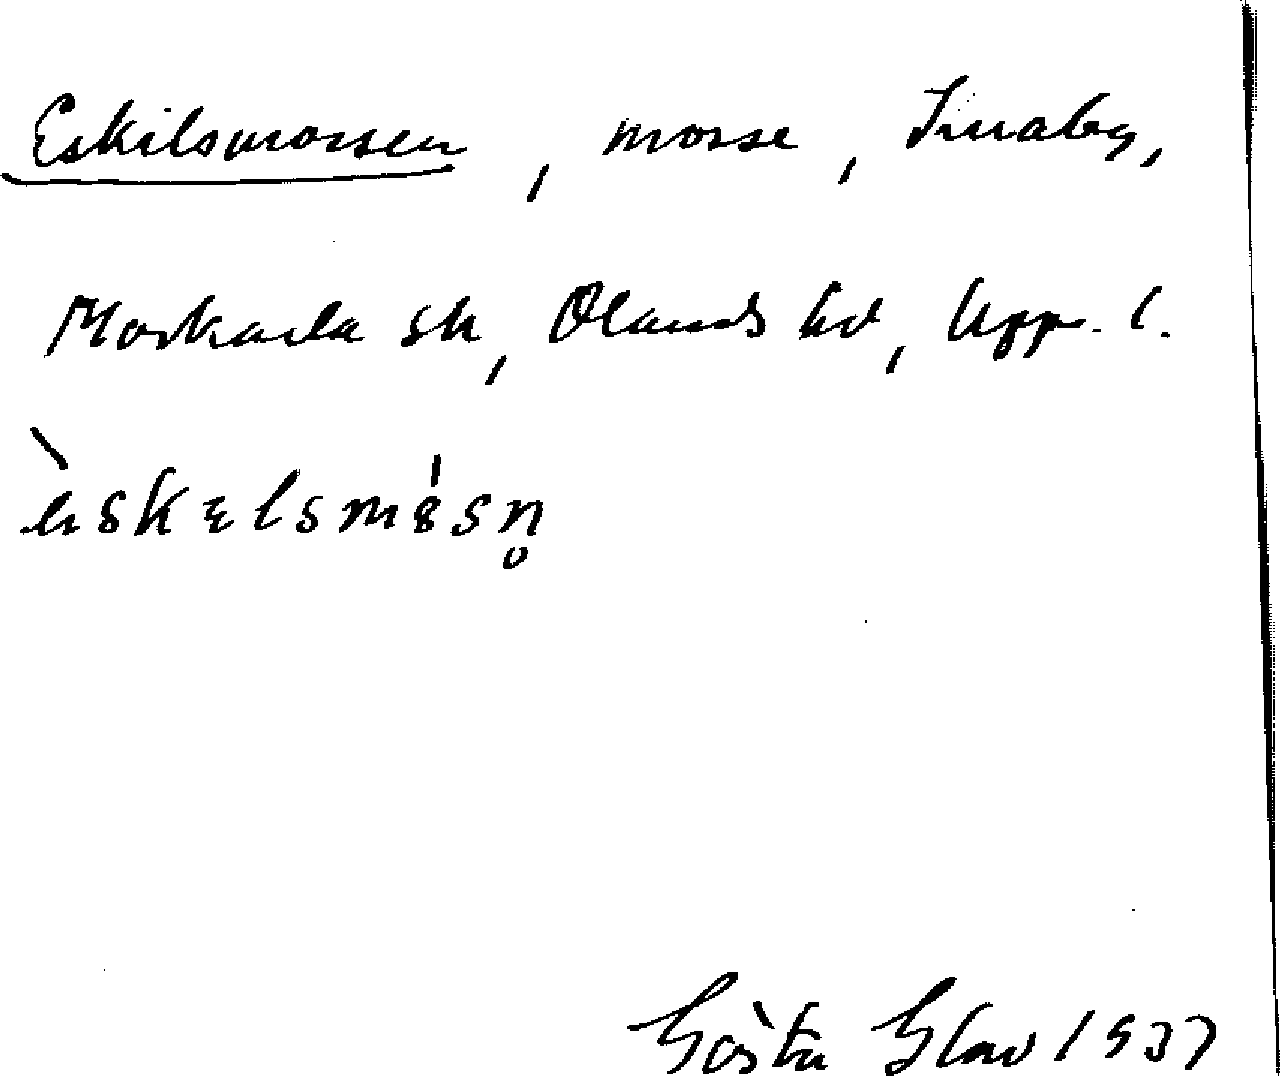 Eskilsmossen, mosse, Smaby,
Morkarla sn, Olands hd, Uppl.
èskelsmôsn̥
Gösta Glav 1937